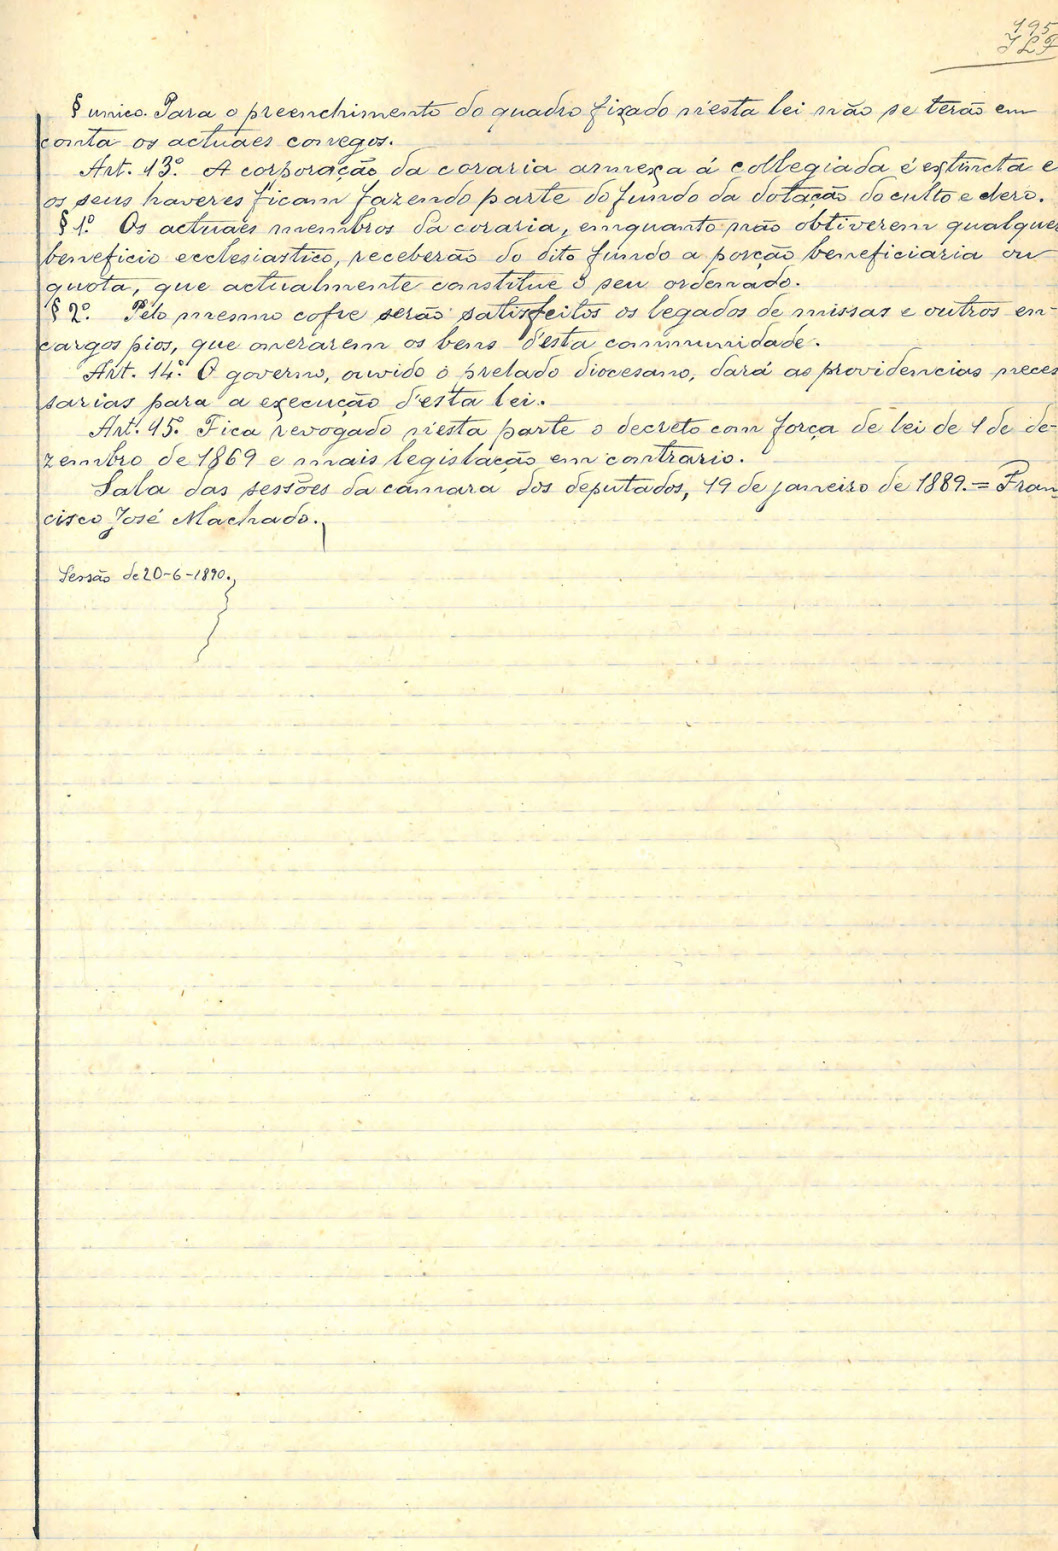 195
JLF
§ unico. Para o preenchimento do quadro fixado n'esta lei não se terão em
conta os actuaes conegos.
Art. 13º. A corporação da coraria annexa á collegiada é extincta e
os seus haveres ficam fazendo parte do fundo da dotação do culto e clero.
§ 1º. Os actuaes membros da coraria, emquanto não obtiverem qualquer
beneficio ecclesiastico, receberão do dito fundo a porção beneficiaria ou
quota, que actualmente constitue o seu ordenado.
§ 2º. Pelo mesmo cofre serão satisfeitos os legados de missas e outros en-
cargos pios, que onerarem os bens d'esta communidade.
Art. 14º. O governo, ouvido o prelado diocesano, dará as providencias neces
sarias para a execução d'esta lei.
Art. 15º. Fica revogado n'esta parte o decreto com força de lei de 1 de de-
zembro de 1869 e mais legislação em contrario.
Sala das sessões da câmara dos deputados, 19 de janeiro de 1889. = Fran
cisco José Machado.
Sessão de 20-6-1890.